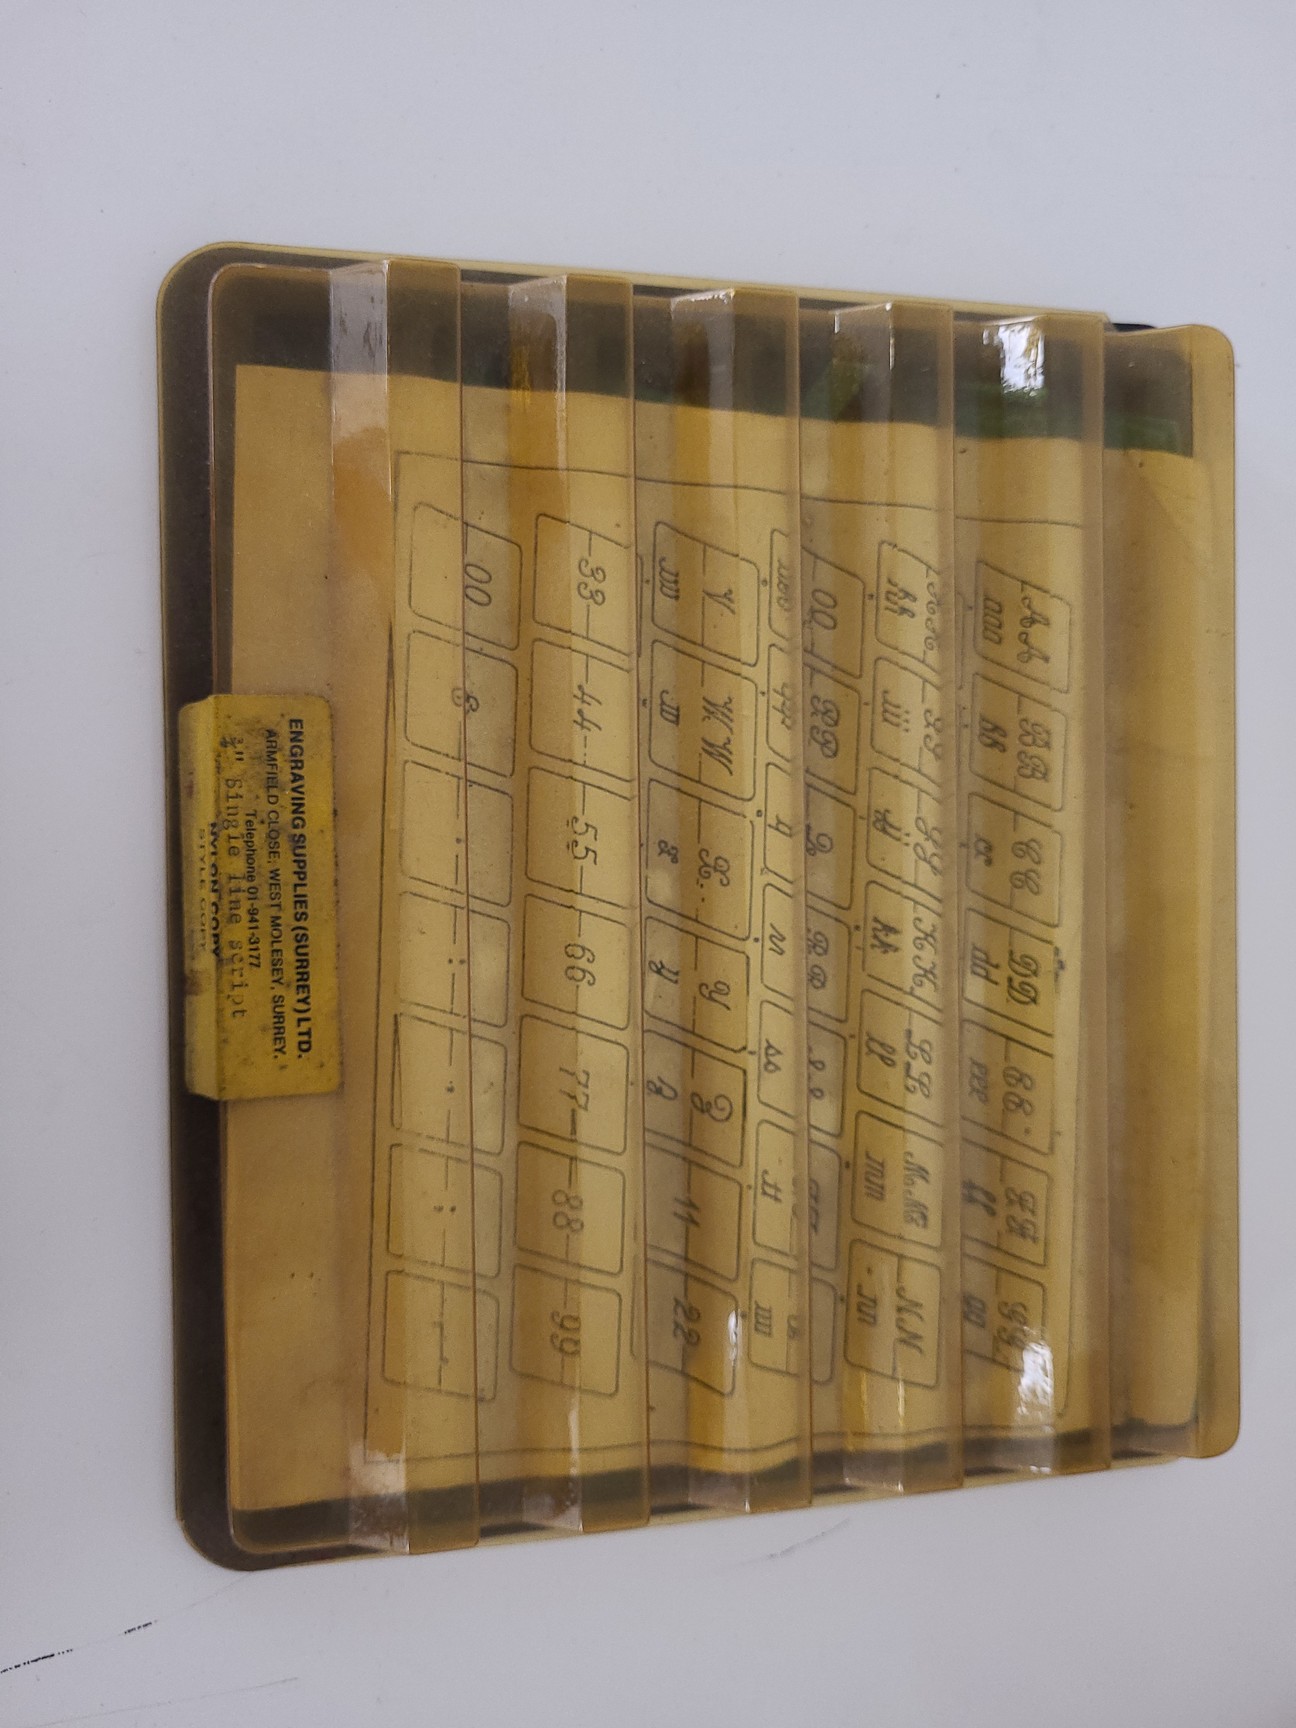 AA BB CC DD EE FF GG
aaa bb cc dd eee ff gg
HH II JJ KK LL MM NN
hh iii jj kk ll mm nn
OO PP Q RR SS
ooo ppp q rr ss tt uu
V WW X Y Z 11 22
vv w x y z
33 44 55 66 77 88 99
00 &
ENGRAVING SUPPLIES (SURREY) LTD.
ARMFIELD CLOSE, WEST MOLESEY, SURREY.
Telephone 01-941-3177
¾" Single line script
NYLON COPY
STYLE COPY